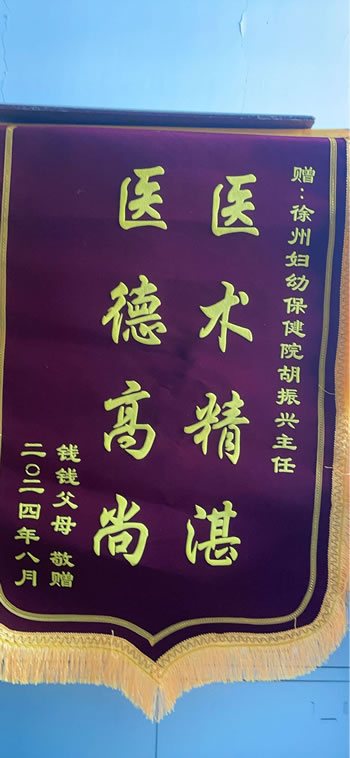 赠:徐州妇幼保健院胡振兴主任
医术精湛
医德高尚
钱钱父母 敬赠
二〇二四年八月